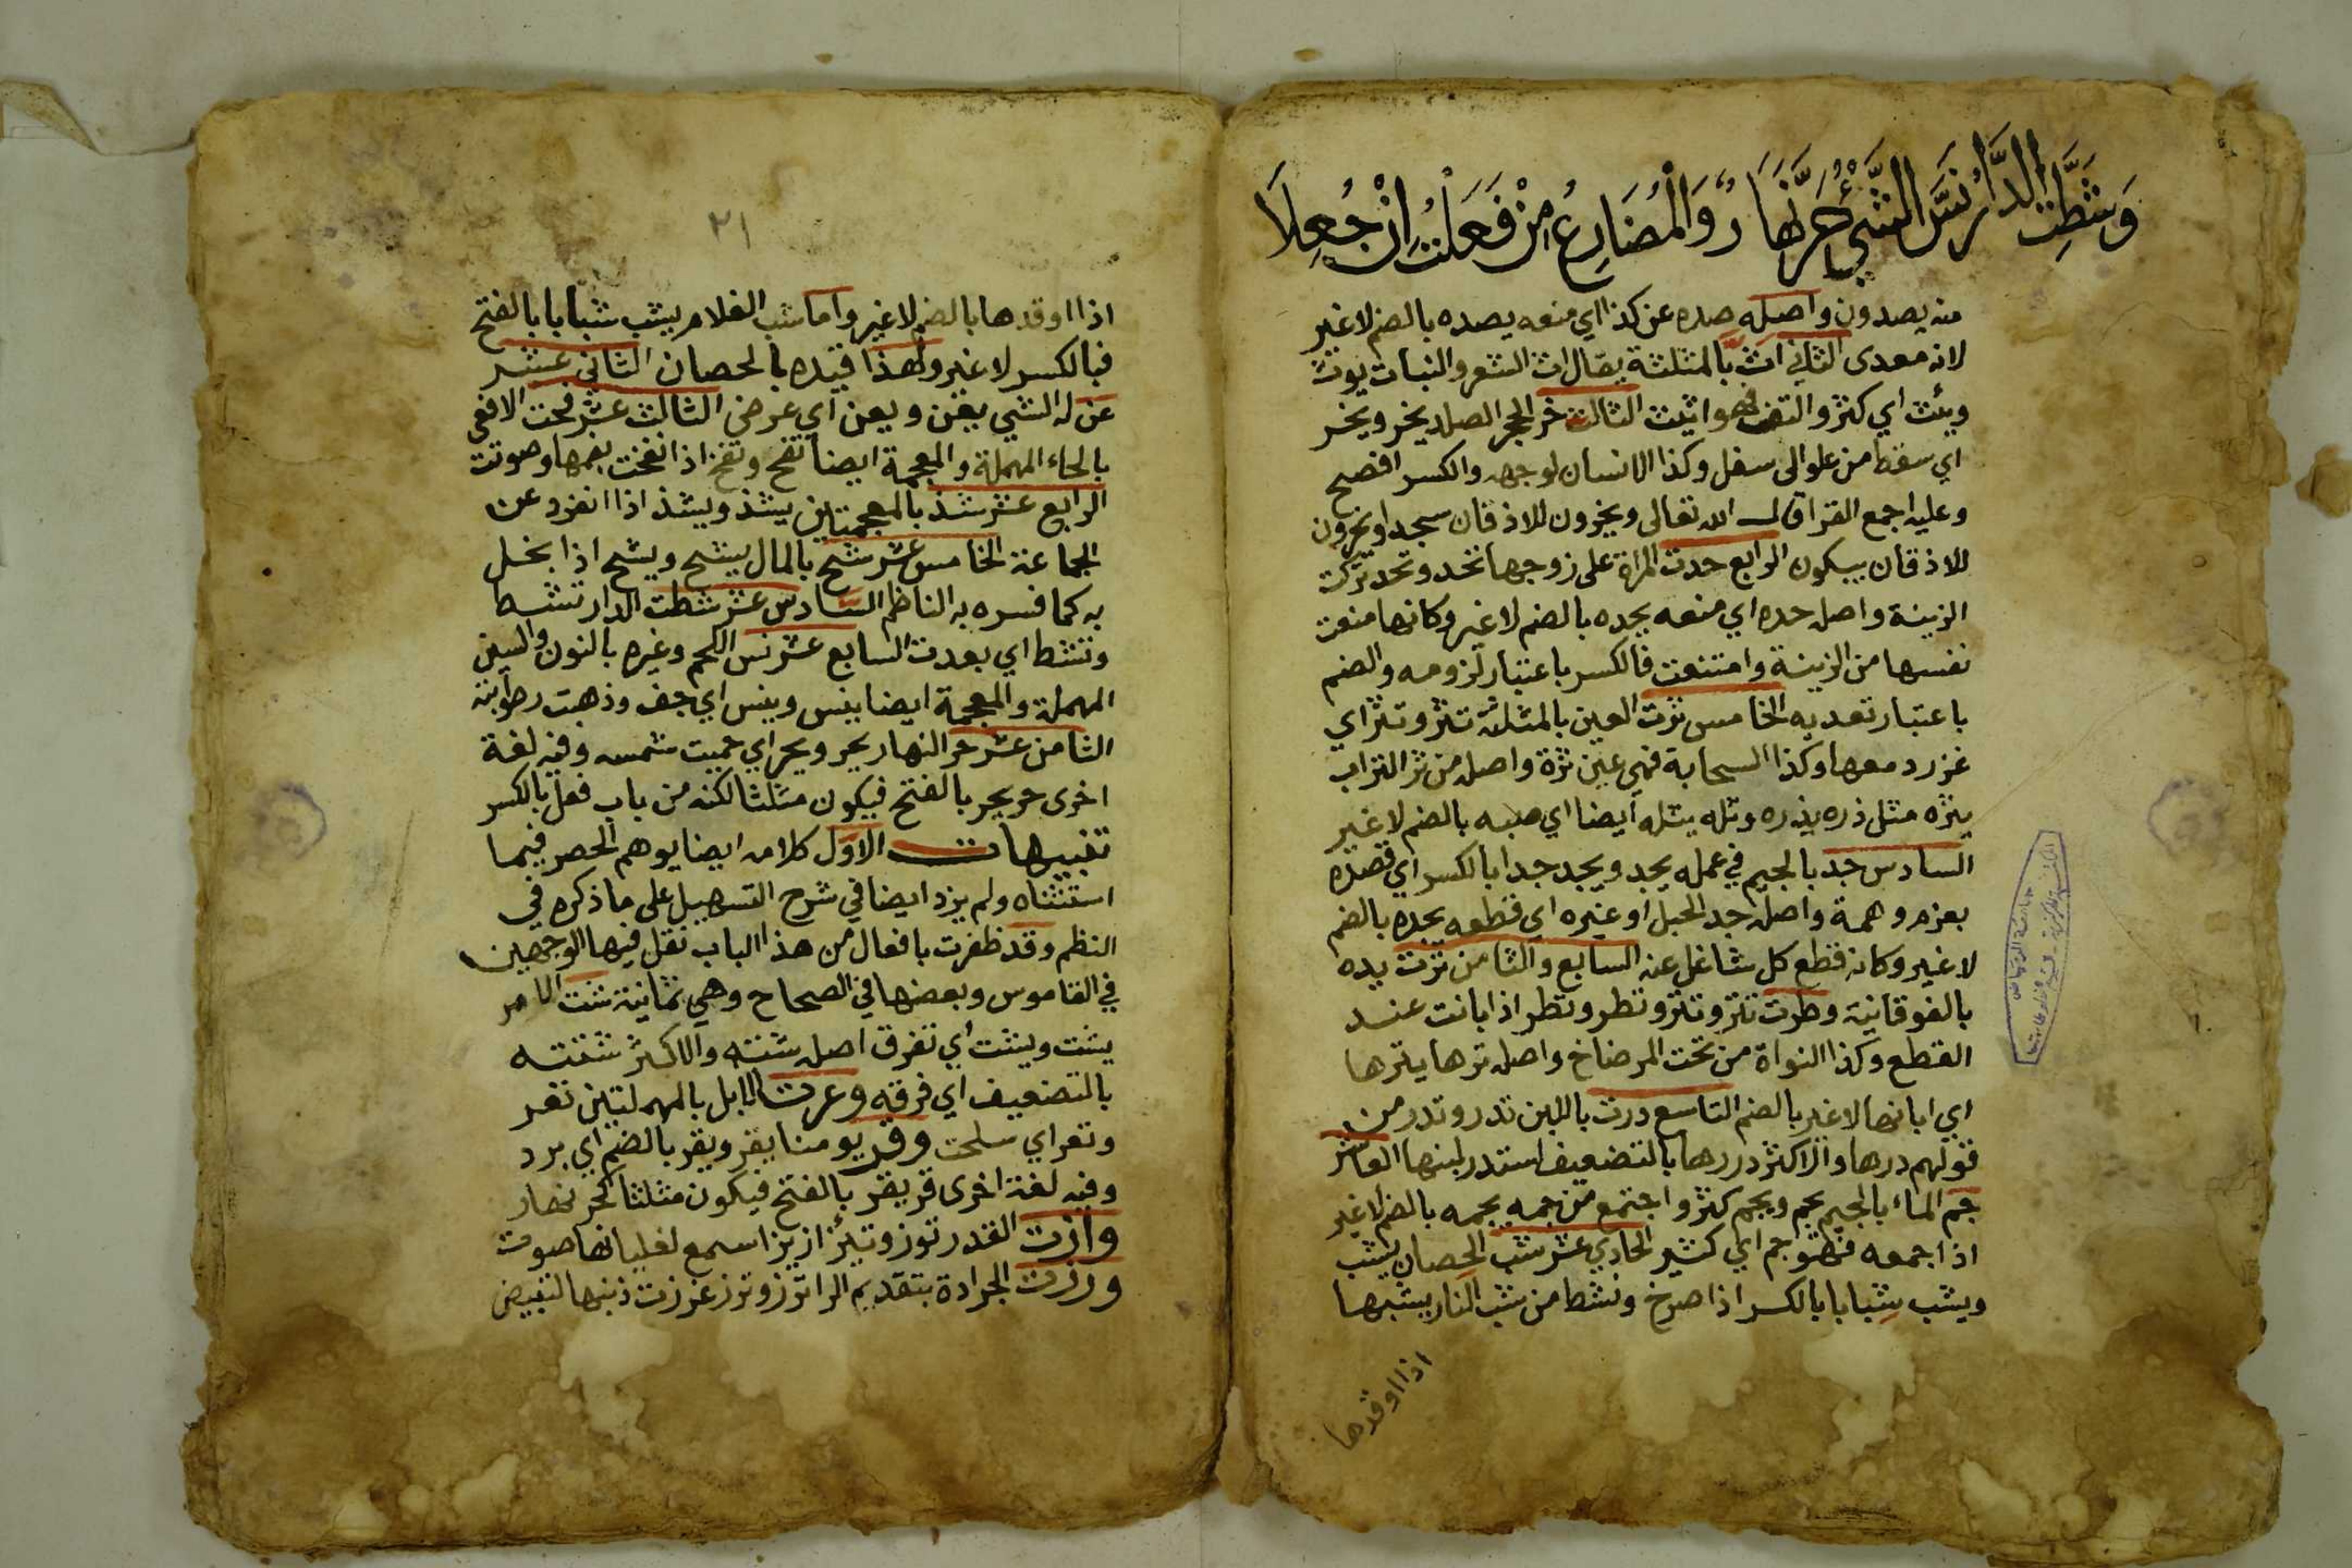 وَشَطَّتِ الدَّارُ نَسَّ الشَّيْءُ حَرَّ نَهَارٌ وَالْمُضَارِعُ مِنْ فَعَلْتُ اِنْ جُعِلَا
منه يصدون واصله صده عن كذا اي منعه يصده بالضم لا غير
لانه معدى الثاني اث بالمثلثة يقال اث الشعر والنبات يوث
ويئث اي كثر والتف فهو اثيث الثالث خر الحجر الصلد يخر ويخر
اي سقط من علو الى سفل وكذا الانسان لوجهه والكسر افصح
وعليه اجمع القرا قال الله تعالى ويخرون للاذقان سجدا ويخرون
للاذقان يبكون الرابع حدت المراة على زوجها تحد وتحد تركت
الزينة واصله حده اي منعه يحده بالضم لا غير وكانها منعت
نفسها من الزينة وامتنعت فالكسر باعتبار لزومه والضم
باعتبار تعديه الخامس ثرت العين بالمثلثة تثر وتثر اي
غزر دمعها وكذا السحابة فهي عين ثرة واصله من ثر التراب
يثره مثل ذره يذره وثله يثله ايضا اي صبه بالضم لا غير
السادس جد بالجيم في عمله يجد ويجد جدا بالكسر اي قصده
بعزم وهمة واصله جد الحبل او غيره اي قطعه يجده بالضم
لا غير وكانه قطع كل شاغل عنه السابع والثامن ترت يده
بالفوقانية وطرت تتر وتتر وتطر وتطر اذا بانت عند
القطع وكذا النواة من تحت المرضاخ واصله ترها يترها
اي ابانها لا غير بالضم التاسع درت باللبن تدر وتدر من
قولهم درها والاكثر دررها بالتضعيف استدر لبنها العاشر
جم الماء بالجيم يجم ويجم كثر واجتمع من جمه يجمه بالضم لا غير
اذا جمعه فهو جم اي كثير الحادي عشر شب الحصان يشب
ويشب شبابا بالكسر اذا صرخ ونشط من شب النار يشبها
اذا اوقدها
٢١
اذا اوقدها بالضم لا غير واما شب الغلام يشب شبابا بالفتح
فبالكسر لا غير ولهذا قيده بالحصان الثاني عشر
عن له الشي يعن ويعن اي عرض الثالث عشر فحت الافعى
بالحاء المهملة والمعجمة ايضا تفح وتفح اذا نفخت بفمها وصوتت
الرابع عشر شذ بالمعجمتين يشذ ويشذ اذا انفرد عن
الجماعة الخامس عشر شح بالمال يشح ويشح اذا بخل
به كما فسره به الناظم السادس عشر شطت الدار تشط
وتشط اي بعدت السابع عشر نس اللحم وغيره بالنون والسين
المهملة والمعجمة ايضا ينس وينس اي جف وذهبت رطوبته
الثامن عشر حر النهار يحر ويحر اي حميت شمسه وفيه لغة
اخرى حر يحر بالفتح فيكون مثلثا لكنه من باب فعل بالكسر
تنبيهات الاول كلامه ايضا يوهم الحصر فيما
استثناه ولم يزد ايضا في شرح التسهيل على ما ذكره في
النظم وقد ظفرت بافعال من هذا الباب نقل فيها الوجهين
في القاموس وبعضها في الصحاح وهي ثمانية شت الامر
يشت ويشت اي تفرق اصله شته والاكثر شتته
بالتضعيف اي فرقه وعرت الابل بالمهملتين تعر
وتعر اي سلحت وقر يومنا يقر ويقر بالضم اي برد
وفيه لغة اخرى قر يقر بالفتح فيكون مثلثا كحر نهار
وازت القدر توز وتئز ازيزا سمع لغليانها صوت
ورزت الجرادة بتقديم الرا ترز وترز غرزت ذنبها لتبيض